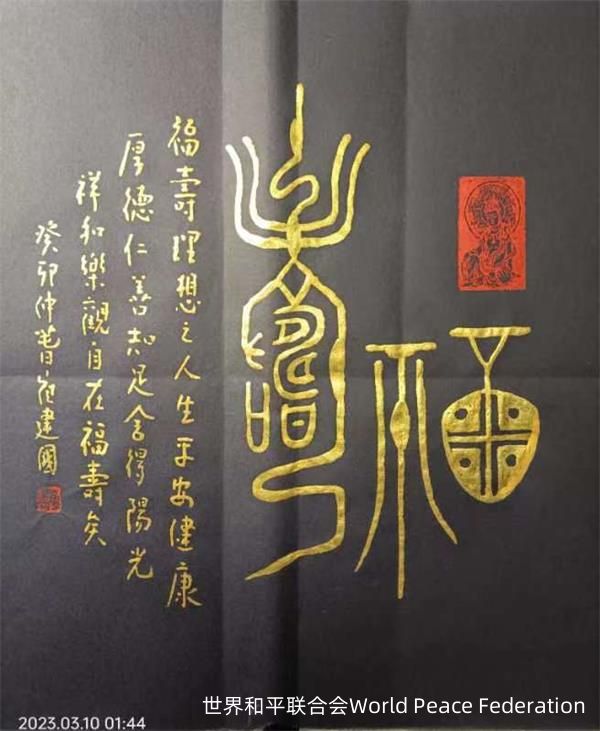 福壽
福壽理想之人生平安健康
厚德仁善知足舍得陽光
祥和樂觀自在福壽矣
癸卯仲春建國
世界和平联合会World Peace Federation
2023.03.10 01:44